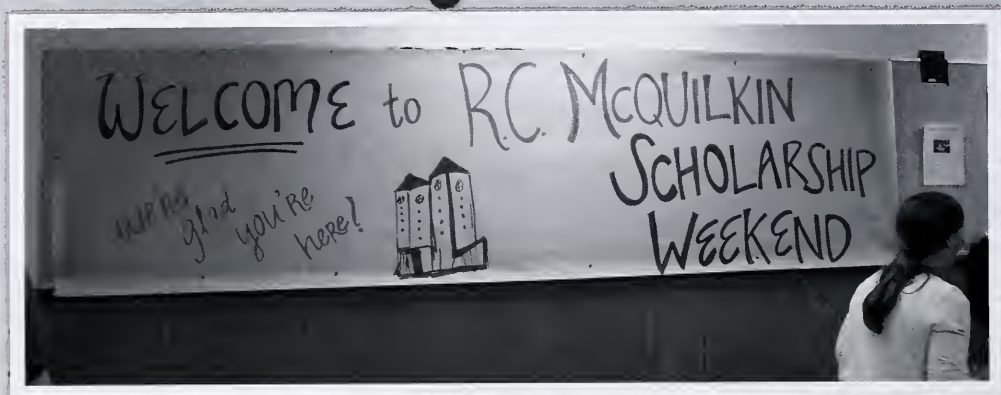 WELCOME to R.C. McQUILKIN
SCHOLARSHIP
WEEKEND
we're
glad
you're
here!